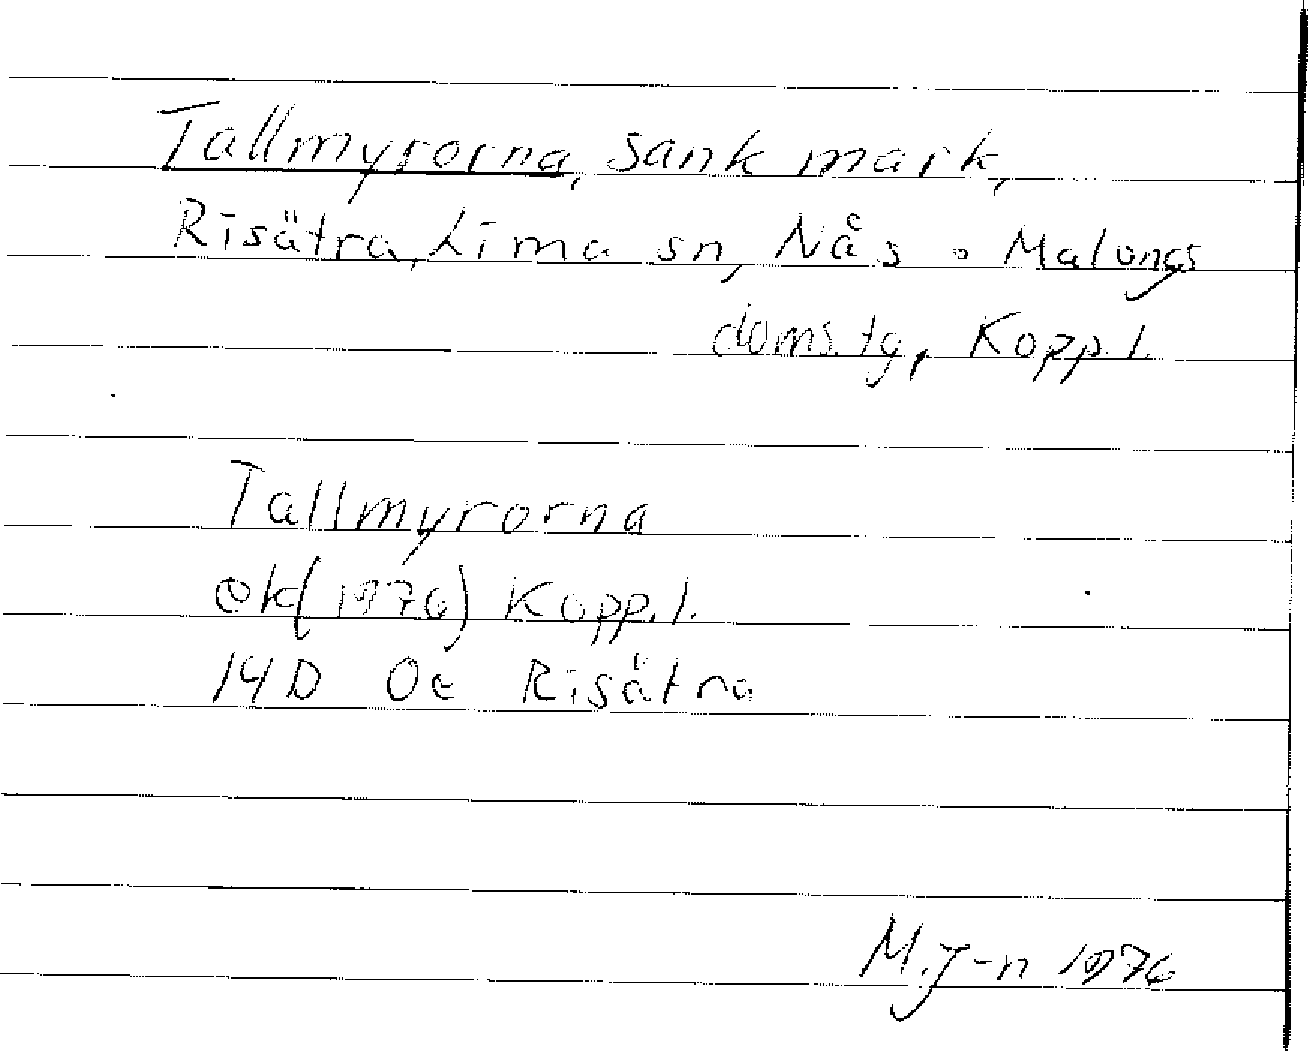 Tallmyrorna, sank mark,
Risätra, Lima sn, Nås o Malungs
doms.tg, Kopp.l.
Tallmyrorna
ek(1976) Kopp.l.
14D 0e Risätra
M.J-n 1976